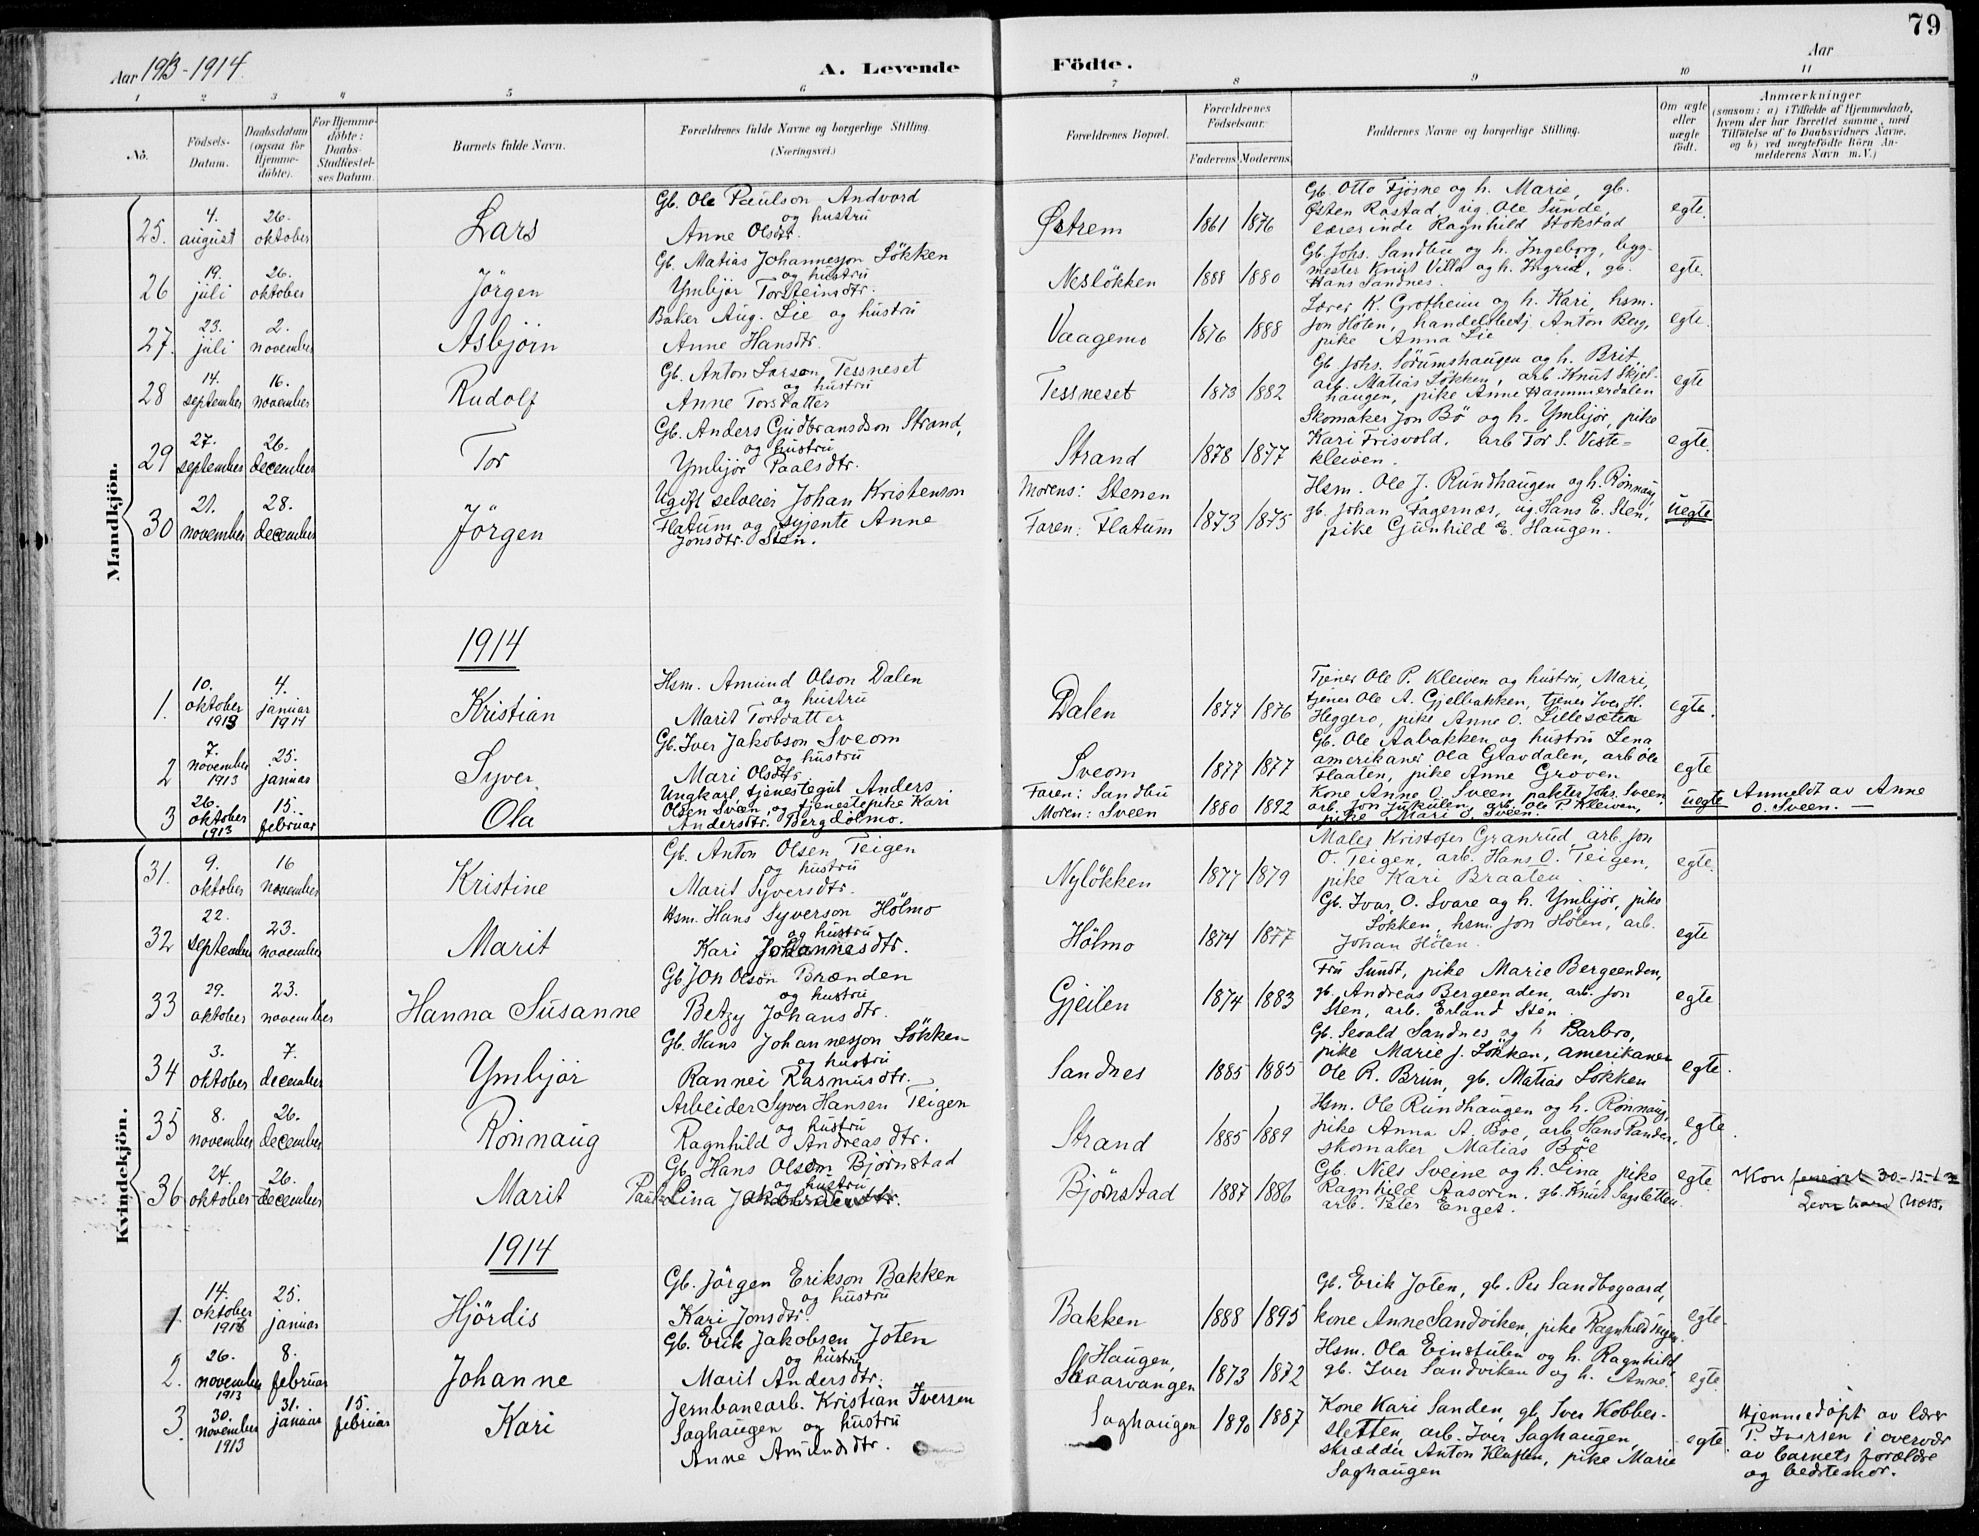 79
Aar 1913-1914.
A. Levende
Födte.
Aar
1 2 3 4 5 6 7 8 9 10 11
No.
Födsels-Datum.
Daabsdatum (ogsaa for Hjemme-döbte).
For Hjemme-döbte: Daabs-Stadfæstel-ses Datum.
Barnets fulde Navn.
Forældrenes fulde Navne og borgerlige Stilling. (Næringsvei.)
Forældrenes Bopæl.
Forældrenes Födselsaar.
Faderens Moderens.
Faddernes Navne og borgerlige Stilling.
Om ægte eller uægte födt.
Anmærkninger
(saasom: a) i Tilfælde af Hjemmedaab, hvem der har forrettet samme, med Tilföielse af to Daabsvidners Navne, og b) ved uægtefödte Börn An-melderens Navn m. V.)
Mandkjön.
25. 4. august 26. oktober Lars Gb. Ole Paulson Andvord og hustru Anne Olsdtr. Östrem 1861 1876 Gb. Otto Fjösne og h. Marie, gb. Østen Rostad, ug. Ole Sunde, lærerinde Ragnhild Stokstad egte.
26 19. juli 26. oktober Jörgen Gb. Matias Johannesson Løkken og hustru Ymbjör Torsteinsdtr. Nesløkken 1888 1880 Gb. Johs. Sandbu og h. Ingeborg, bygmester Knut Villa og h. Ingrid, gb. Hans Sandnes. egte.
27. 23. juli 2. november Asbjörn Baker Aug. Lie og hustru Anne Hansdtr. Vaagemo 1876 1888 Lærer K. Grotheim og h. Kari, hsm. Jon Hølen, handelsbetj. Anton Berg, pike Anna Lie egte.
28 14. september 16. november Rudolf Gb. Anton Larson Tessneset og hustru Anne Torsdatter Tessneset 1873 1882 Gb Johs. Sörumshaugen og h. Brit, arb. Matias Løkken, arb. Knut Skjelhaugen, pike Anne Hammerdalen egte
29 27. september 26. december Tor Gb. Anders Gudbrandsson Strand, og hustru Ymbjör Paalsdtr. Strand 1878 1877 Skomaker Jon Bö og h. Ymbjör, pike Kari Frisvold, arb Tor S. Viste-kleiven. egte.
30 21. november 28. december Jörgen Ugift selveier Johan Kristenson Flatum og syjente Anne Jonsdtr. Sten. Morens: Stenen Faren: Flatum 1873 1875 Hsm. Ole J. Rundhaugen og h. Rönnaug gb. Johan Fagernæs, ug. Hans E. Sten, pike Gunhild E. Haugen. uegte
1914
1. 10. oktober 1913 4. januar 1914 Kristian Hsm. Amund Olson Dalen og hustru Marit Torsdatter Dalen 1877 1876 Tjener Ole P. Kleiven og hustru, Mari, tjener Ole A. Gjelbakken, tjener Iver H. Heggero, pike Anne O. Lillesæter egte.
2 7. november 1913 25. januar Syver Gb. Iver Jakobson Sveom og hustru Mari Olsdtr. Sveom 1877 1877 Gb. Ole Aabakken og hustru Lena amerikaner Ola Gravdalen, arb Ole Flaaten, pike Anne Groven egte
3 26. oktober 1913 15. februar Ola Ungkarl tjenestegut Anders Olsen Sveen og tjenestepike Kari Andersdtr. Bergdølmo. Faren: Sandbu Moren: Sveen 1880 1892 Kone Anne O. Sveen, pakter Johs. Sveen, arb. Jon Jukulen, arb. Ole P. Kleiven, pike Mari O. Sveen. uegte Anmeldt av Anne O. Sveen. —
Kvindekjön.
31. 9. oktober 16 november Kristine Gb. Anton Olsen Teigen og hustru Marit Syversdtr. Nyløkken 1877 1879 Maler Kristofer Granrud, arb. Jon O. Teigen, arb. Hans O. Teigen, pike Kari Braaten egte.
32 22. september 23. november Marit Hsm. Hans Syverson Hölmo og hustru Kari Johannesdtr. Hölmo 1874 1877 Gb. Ivar O. Svare og h. Ymbjör, pike Løkken, hsm. Jon Hölen, arb. Johan Hölen. egte
33 29. oktober 23. november Hanna Susanne Gb Jon Olson Brænden og hustru Betzy Johansdtr. Gjeilen 1874 1883 Fru Sundt, pike Marie Bergeenden, gb. Andreas Bergeenden, arb. Jon Sten, arb. Erland Sten. egte
34 3. oktober 7. december Ymbjör Gb. Hans Johannesson Løkken og hustru Rannei Rasmusdtr. Sandnes 1885 1885 Gb. Sevald Sandnes og h Barbro, pike Marie J. Løkken, amerikaner Ole R. Brun, gb. Matias Løkken egte.
35 8. november 26. december Rönnaug Arbeider Syver Hansen Teigen og hustru Ragnhild Andreasdtr. Strand 1885 1889 Hsm. Ole Rundhaugen og h. Rönnaug, pike Anna A. Böe, arb. Hans Randen, skomaker Matias Böe egte.
36 24. oktober 26. december Marit Gb. Hans Olson Bjørnstad og hustru Lina Bjørnstad 1887 1886 Gb. Nils Sveine og h. Lina, pike Ragnhild Aasoren, gb. Knut Sagsletten, arb. Peter Enget. egte. 30-12-
1914
1 14. oktober 25. januar Hjördis Gb. Jörgen Erikson Bakken og hustru Kari Jonsdtr. Bakken 1888 1895 Gb. Erik Joten, gb. Per Sandbogaard, kone Anne Sandviken, pike Ragnhild egte.
2. 26. november 1913 8. februar Johanne Gb. Erik Jakobsen Joten og hustru Marit Andersdtr. Haugen, Skaarvangen 1873 1872 Hsm. Ola Einstulen og h. Ragnhild, gb. Iver Sandviken og h. Anne. egte.
3. 30. november 1913 31. januar 15. februar Kari Jernbanearb. Kristian Iversen Saghaugen og hustru Anne Amundsdtr. Saghaugen 1890 1887 Kone Kari Sanden, gb. Iver Kobber-sletten, arb. Iver Saghaugen, skrædder Anton Kluften, pike Marie Saghaugen egte. Hjemmedöpt av lærer P. Iversen i overvær av barnets forældre og bedstemor.